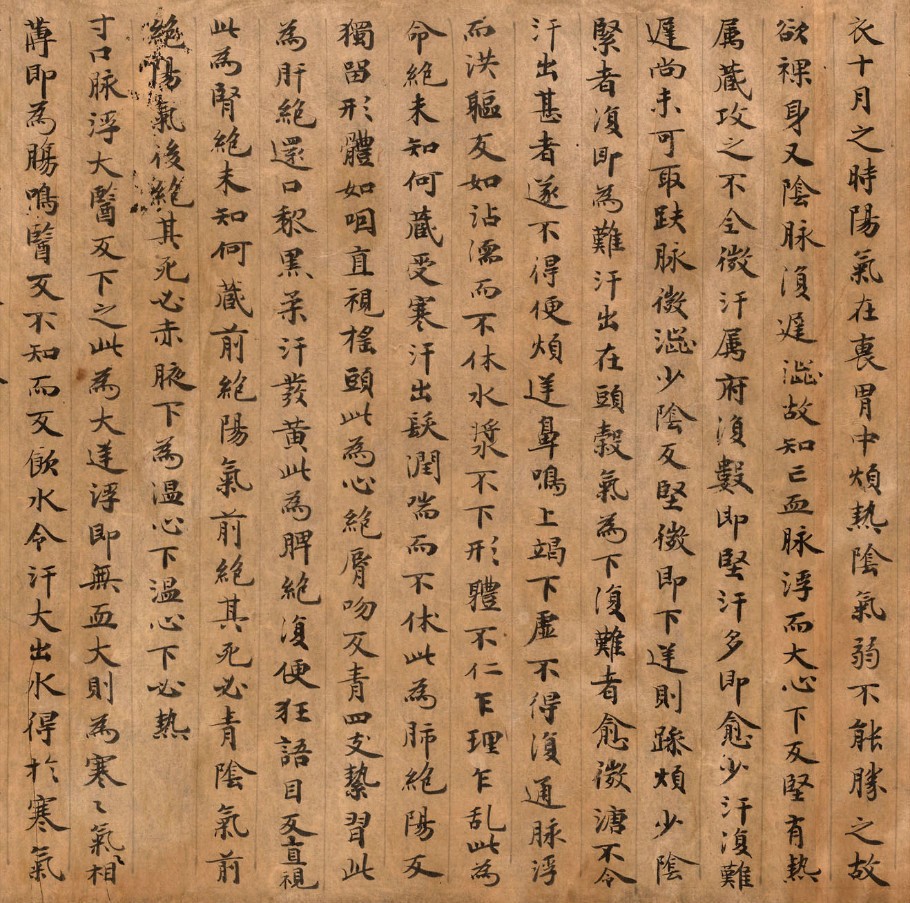 衣十月之時陽氣在裏胃中煩熱陰氣弱不能勝之故
欲裸身又陰脉復遲澁故知亡血脉浮而大心下反堅有熱
属藏攻之不全微汗属府復數即堅汗多即愈少汗復難
遲尚未可取趺脉微澁少陰反堅微即下逆則躁煩少陰
緊者復即為難汗出在頭穀氣為下復難者愈微溏不令
汗出甚者遂不得便煩逆鼻鳴上竭下虛不得復通脉浮
而洪軀反如沾濡而不休水漿不下形體不仁乍理乍乱此為
命絶未知何藏受寒汗出髮潤喘而不休此為肺絶陽反
獨留形體如咽直視揺頭此為心絶脣吻反青四支漐習此
為肝絶還口黎黒柔汗發黃此為脾絶復便狂語目反直視
此為腎絶未知何藏前絶陽氣前絶其死必青陰氣前
絶陽氣後絶其死必赤腋下為温心下温心下必熱
寸口脉浮大醫反下之此為大逆浮即無血大則為寒〻氣相
薄即為腸鳴醫反不知而反飲水令汗大出水得於寒氣